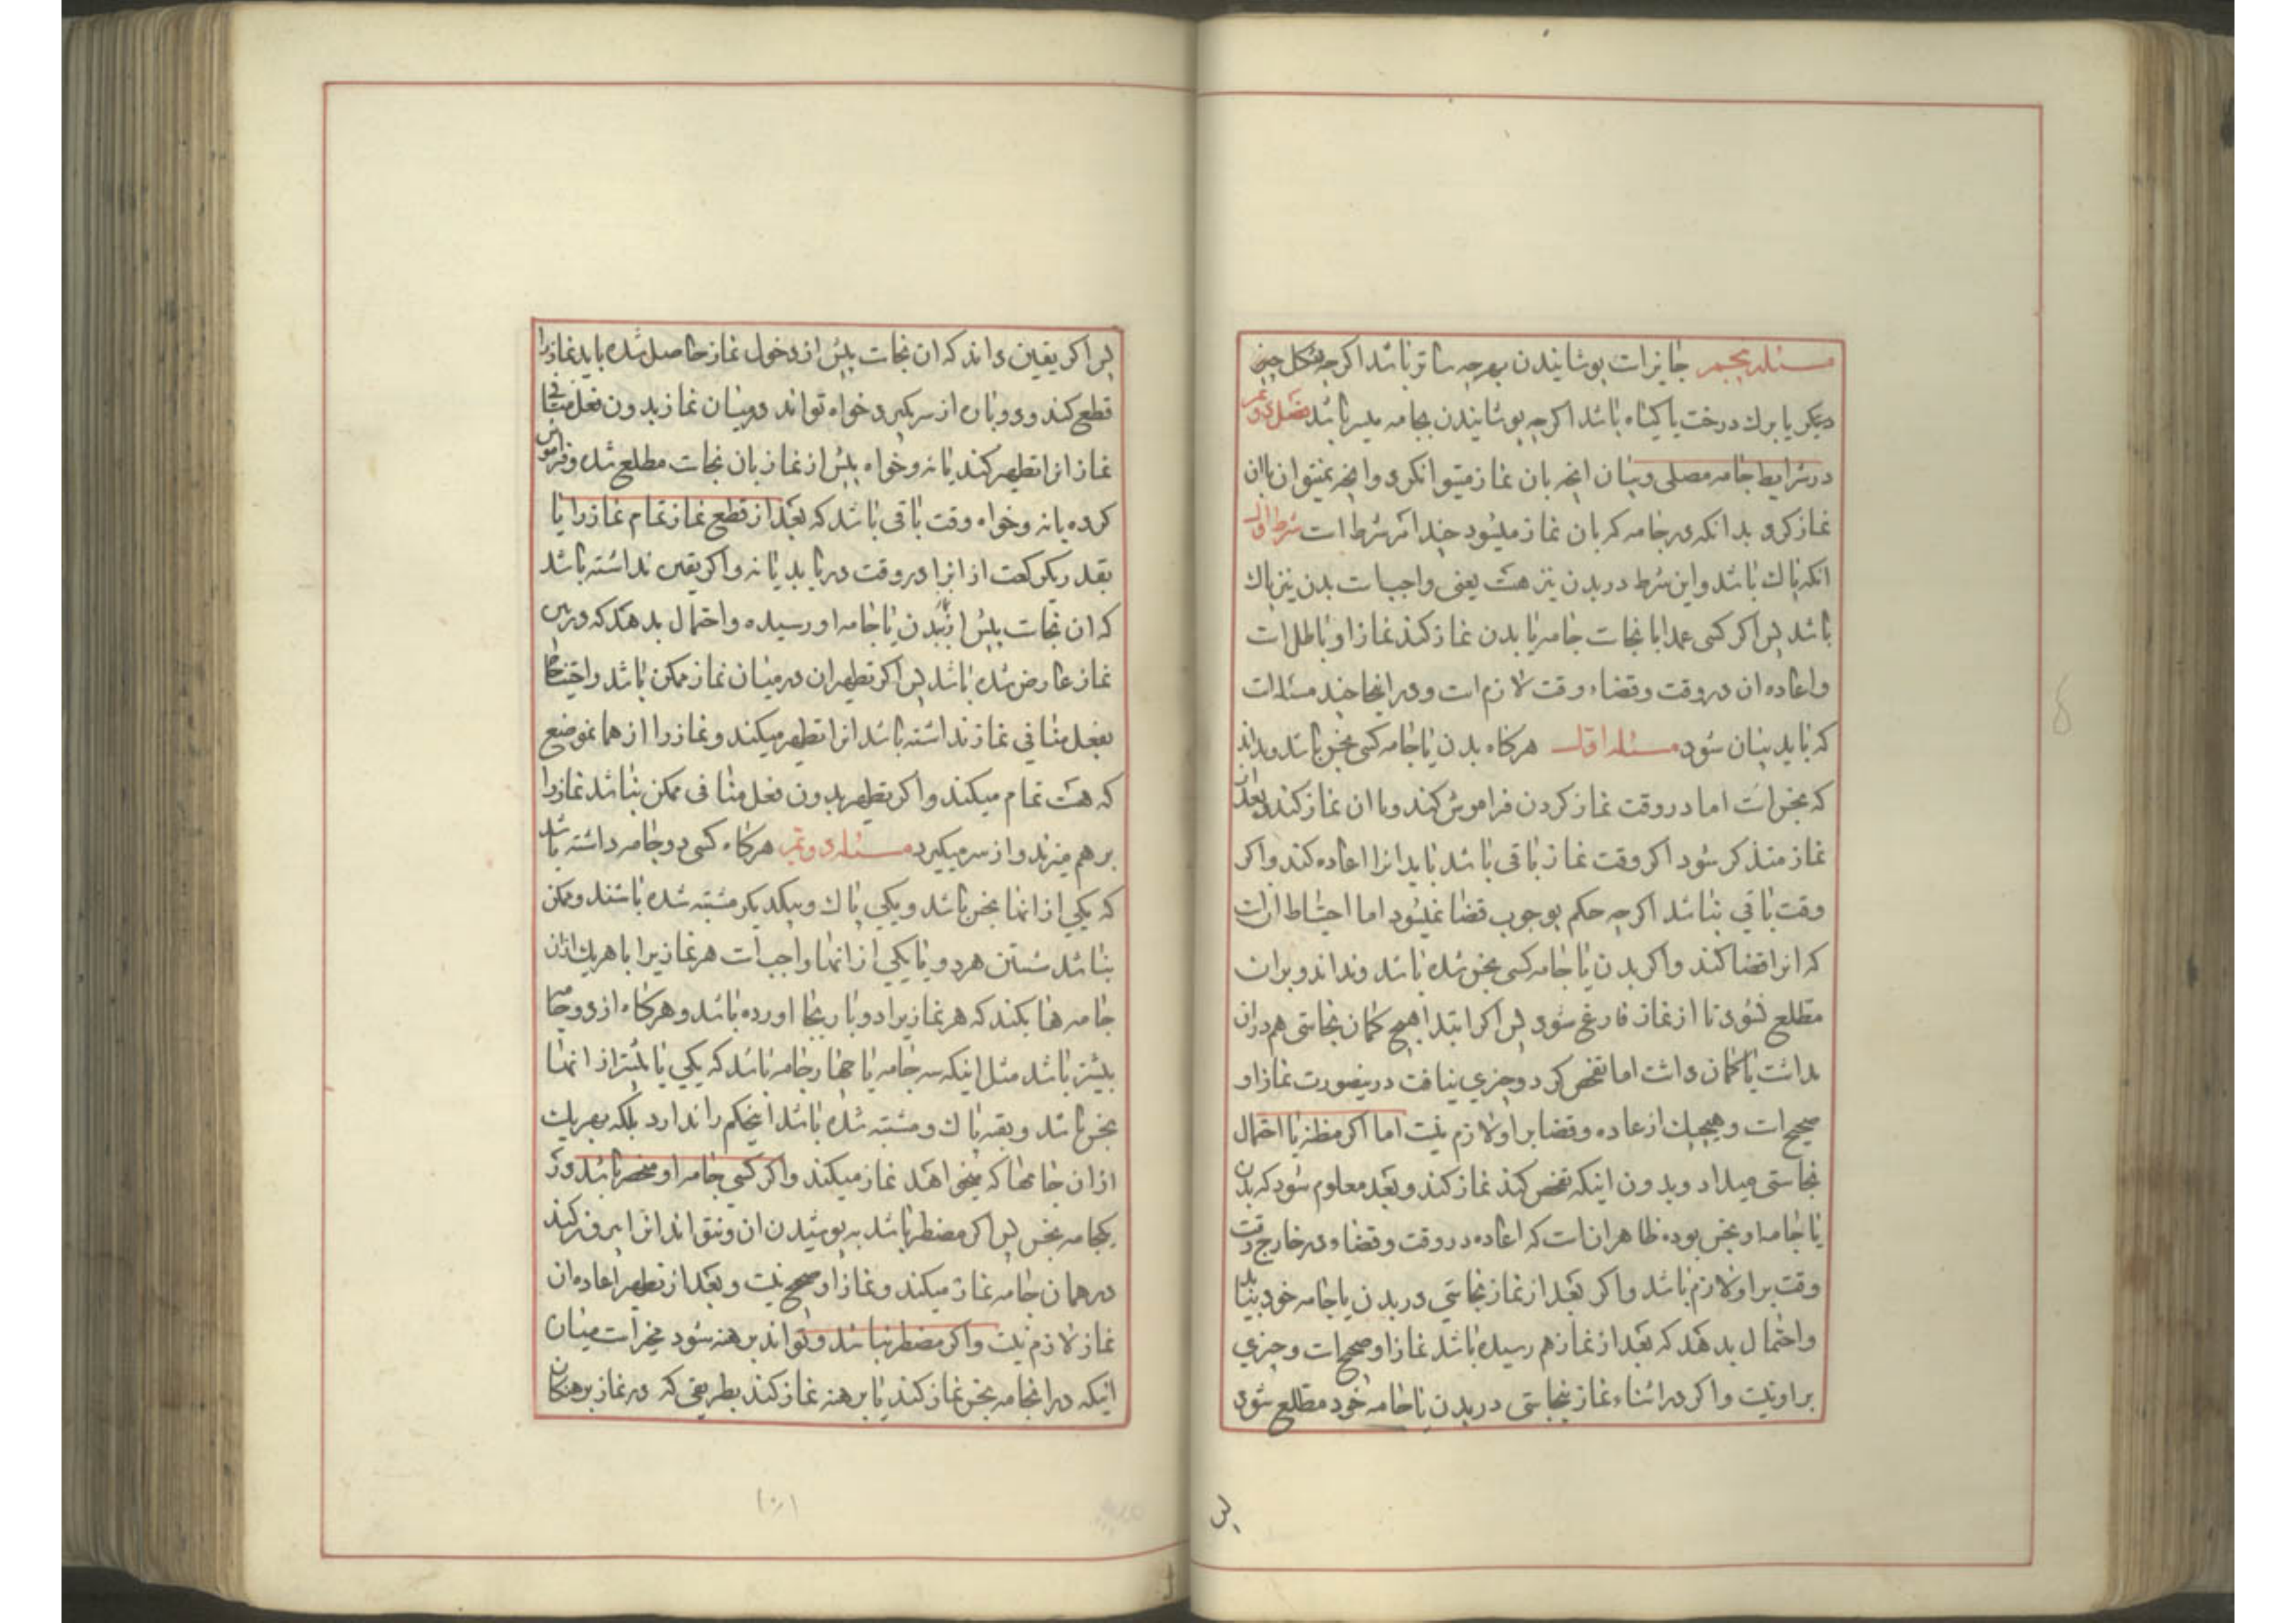 مسئله پنجم جایز است پوشانیدن بهرچه ساتر باشد اگرچه بشکل چیز
دیکر یا برك درخت یا کیاه باشد اکرچه پوشانیدن بجامه میسر باشد فصل دویم
در شرایط جامه مصلی و بیان انچه بان نماز میتوان کرد و انچه نمیتوان باان
نماز کرد بدانکه در جامه که بان نماز میشود چند امر شرط است شرط اول
انکه پاك باشد و این شرط در بدن نیز هست یعنی واجبست بدن نیز پاك
باشد پس اکر کسی عمدا با نجاست جامه یا بدن نماز کند نماز او باطل است
و اعاده ان در وقت و قضاء وقت لازم است و در اینجا چند مسئله است
که باید بیان شود مسئله اول هرکاه بدن یا جامه کسی نجس باشد و بداند
که نجس است اما در وقت نماز کردن فراموش کند و باان نماز کند و بعد از
نماز متذکر شود اکر وقت نماز باقی باشد باید انرا اعاده کند و اکر
وقت باقی نباشد اکرچه حکم بوجوب قضا نمیشود اما احتیاط ان است
که انرا قضا کند و اکر بدن یا جامه کسی نجس شده باشد و نداند و بران
مطلع نشود تا از نماز فارغ شود پس اکر ابتدا هیچ کمان نجاستی هم دران
نداشت یا کمان داشت اما تفحص کرد و چیزی نیافت در ینصورت نماز او
صحیح است و هیچیك از عاده و قضا بر او لازم نیست اما اکر مظنه یا احتمال
نجاستی میداد و بدون اینکه تفحص کند نماز کند و بعد معلوم شود که بدن
یا جامه او نجس بوده ظاهر ان است که اعاده در وقت و قضاء در خارج وقت
وقت بر او لازم باشد و اکر بعد از نماز نجاستی در بدن یا جامه خود بیابد
و احتمال بدهد که بعد از نماز هم رسیده باشد نماز او صحیح است و چیزی
بر او نیست و اکر در اثناء نماز نجاستی در بدن یا جامه خود مطلع شود
پس
پس اکر یقین داند که ان نجاست پیش از دخول نماز حاصل شده باید نماز را
قطع کند و دوباره از سر بکیرد خواه تواند در میان نماز بدون فعل منافی
نماز انرا تطهیر کند یا نه و خواه پیش از نماز بان نجاست مطلع شده و فراموش
کرده یا نه و خواه وقت باقی باشد که بعد از قطع نماز تمام نماز را یا
بقدر یکرکعت از انرا در وقت دریابد یا نه و اکر یقین نداشته باشد
که ان نجاست پیش از نماز ببدن یا جامه او رسیده و احتمال بدهد که در بین
نماز عارض شده باشد پس اکر تطهیر ان در میان نماز ممکن باشد و احتیاج
بفعل منافی نماز نداشته باشد انرا تطهیر میکند و نماز را از همانموضع
که هست تمام میکند و اکر تطهیر بدون فعل منافی ممکن نباشد نماز را
بر هم میزند و از سر میکیرد مسئله دویم هرکاه کسی دو جامه داشته باشد
که یکی از انها نجس باشد و یکی پاك و بیکدیکر مشتبه شده باشند و ممکن
نباشد شستن هر دو یا یکی از انها واجب است هر نمازیرا با هر یك ازان
جامه ها بکند که هر نمازیرا دو بار بجا اورده باشد و هرکاه از دو جامه
بیشتر باشد مثل اینکه سه جامه یا چهار جامه باشد که یکی یا بیشتر از انها
نجس باشد و بقیه پاك و مشتبه شده باشد اینحکم را ندارد بلکه بهر یك
ازان جامها که میخواهد نماز میکند و اکر کسی جامه او منحصر باشد در
یکجامه نجس پس اکر مضطر باشد به پوشیدن ان و نتواند انرا بیرون کند
در همان جامه نماز میکند و نماز او صحیح نیست و بعد از تطهیر اعاده ان
نماز لازم نیست و اکر مضطر نباشد و تواند برهنه شود مخیر است میان
اینکه در انجامه نجس نماز کند یا برهنه نماز کند بطریقی که در نماز برهنکان